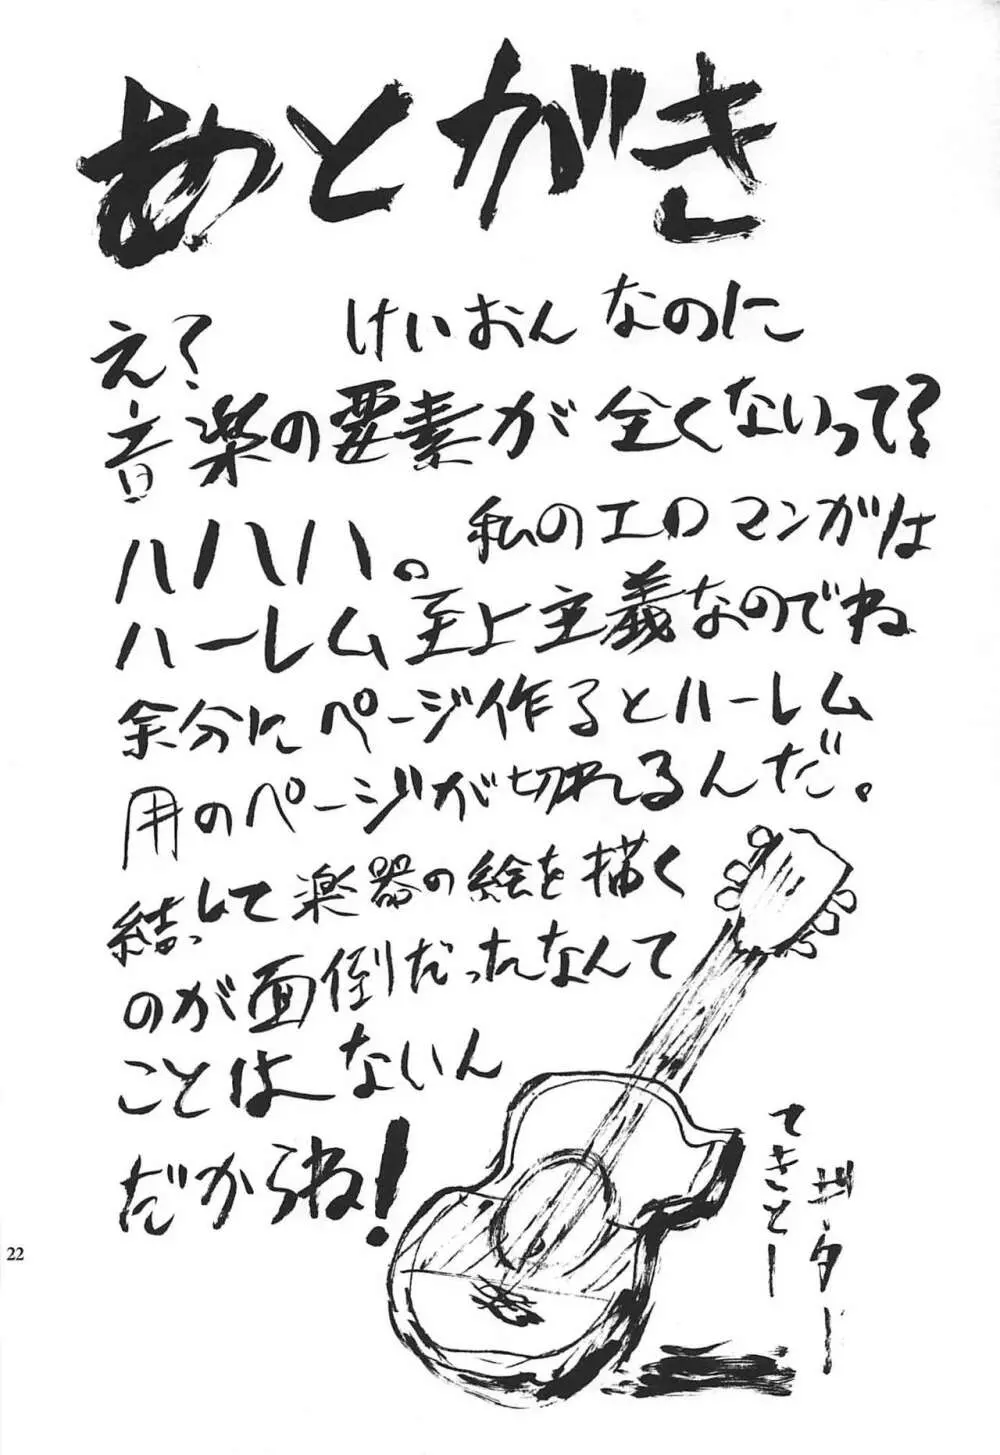 あとがき
え？ けいおんなのに
音楽の要素が全くないって？
ハハハ。私のエロマンガは
ハーレム至上主義なのでね
余分にページ作るとハーレム
用のページが切れるんだ。
結して楽器の絵を描く
のが面倒だったなんて
ことはないん
だからね!
ギター
てきとー
22